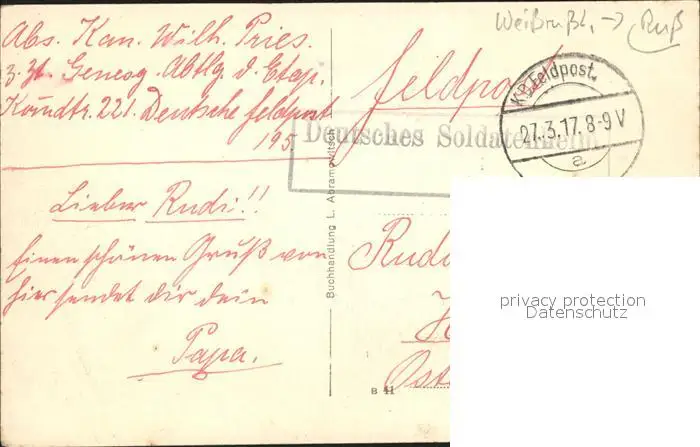 Weißrußl. → Ruß
Abs. Kan. Wilh. Pries.
z. Zt. Genesg. Abtlg d. Etap.
Komdtr. 221. Deutsche Feldpost
195.
Lieber Rudi!!
Einen schönen Gruß von
hier sendet dir dein
Papa.
Buchhandlung L. Abramowitsch
Feldpost
K.D. Feldpost.
27.3.17. 8-9 V
a
Deutsches Soldatenheim
Rud
H
Ost
B 41
privacy protection
Datenschutz